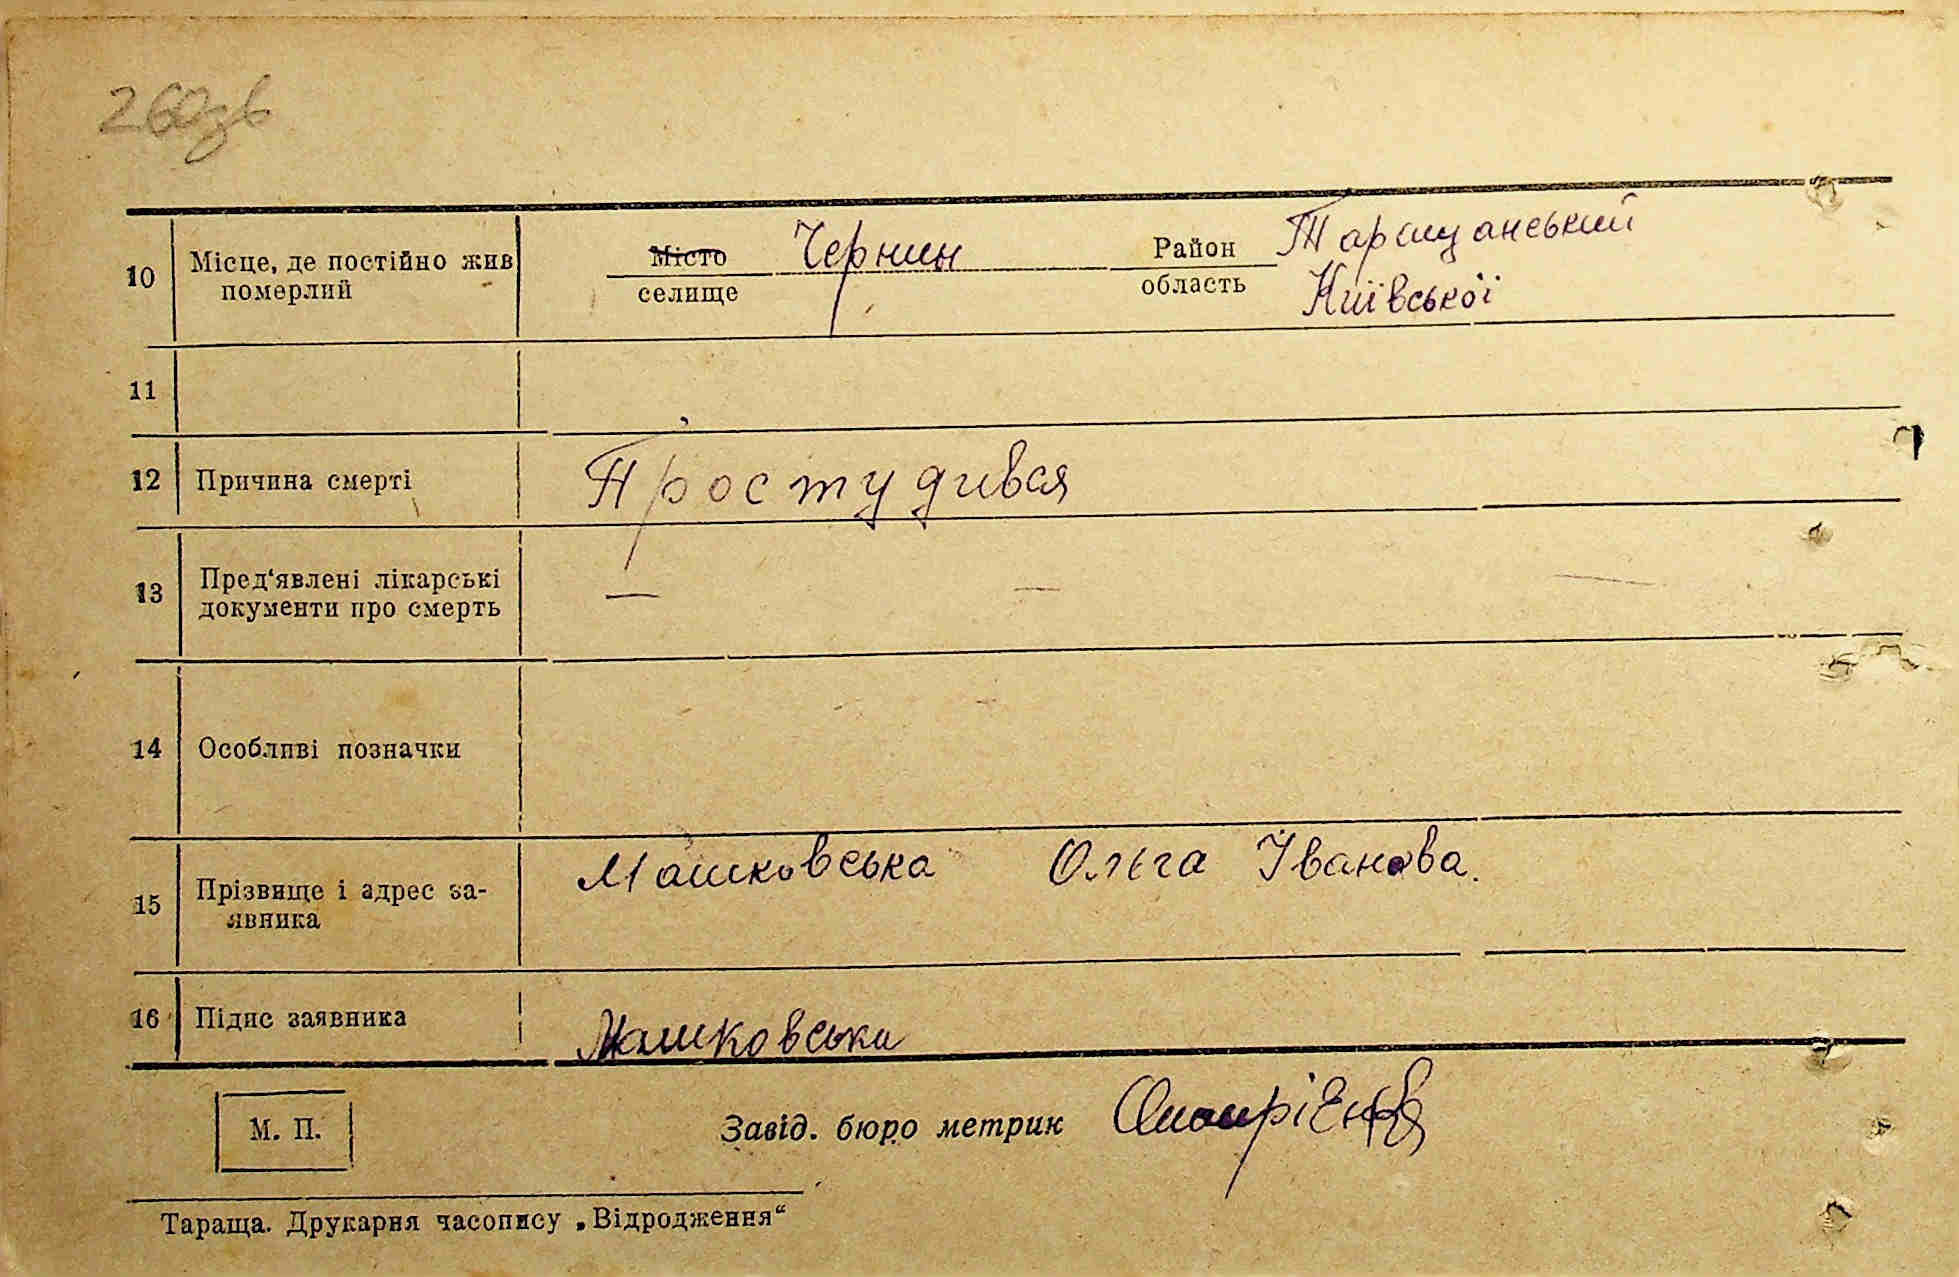 260зв
10 Місце, де постійно жив Місто Чернин Район Таращанський
померлий селище область Київської
11
12 Причина смерті Простудився
13 Пред‘явлені лікарські — — —
документи про смерть
14 Особливі позначки
15 Прізвище і адрес за- Машковська Ольга Іванова.
явника
16 Підпис заявника Машковська
М. П. Завід. бюро метрик
Тараща. Друкарня часопису „Відродження“